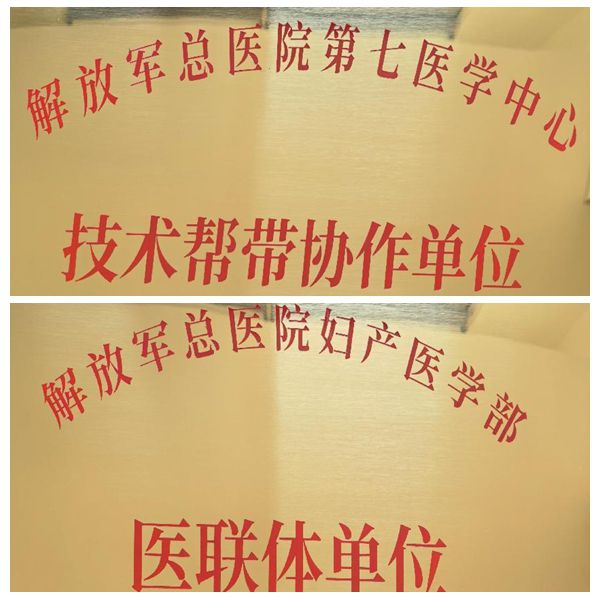 解放军总医院第七医学中心
技术帮带协作单位
解放军总医院妇产医学部
医联体单位